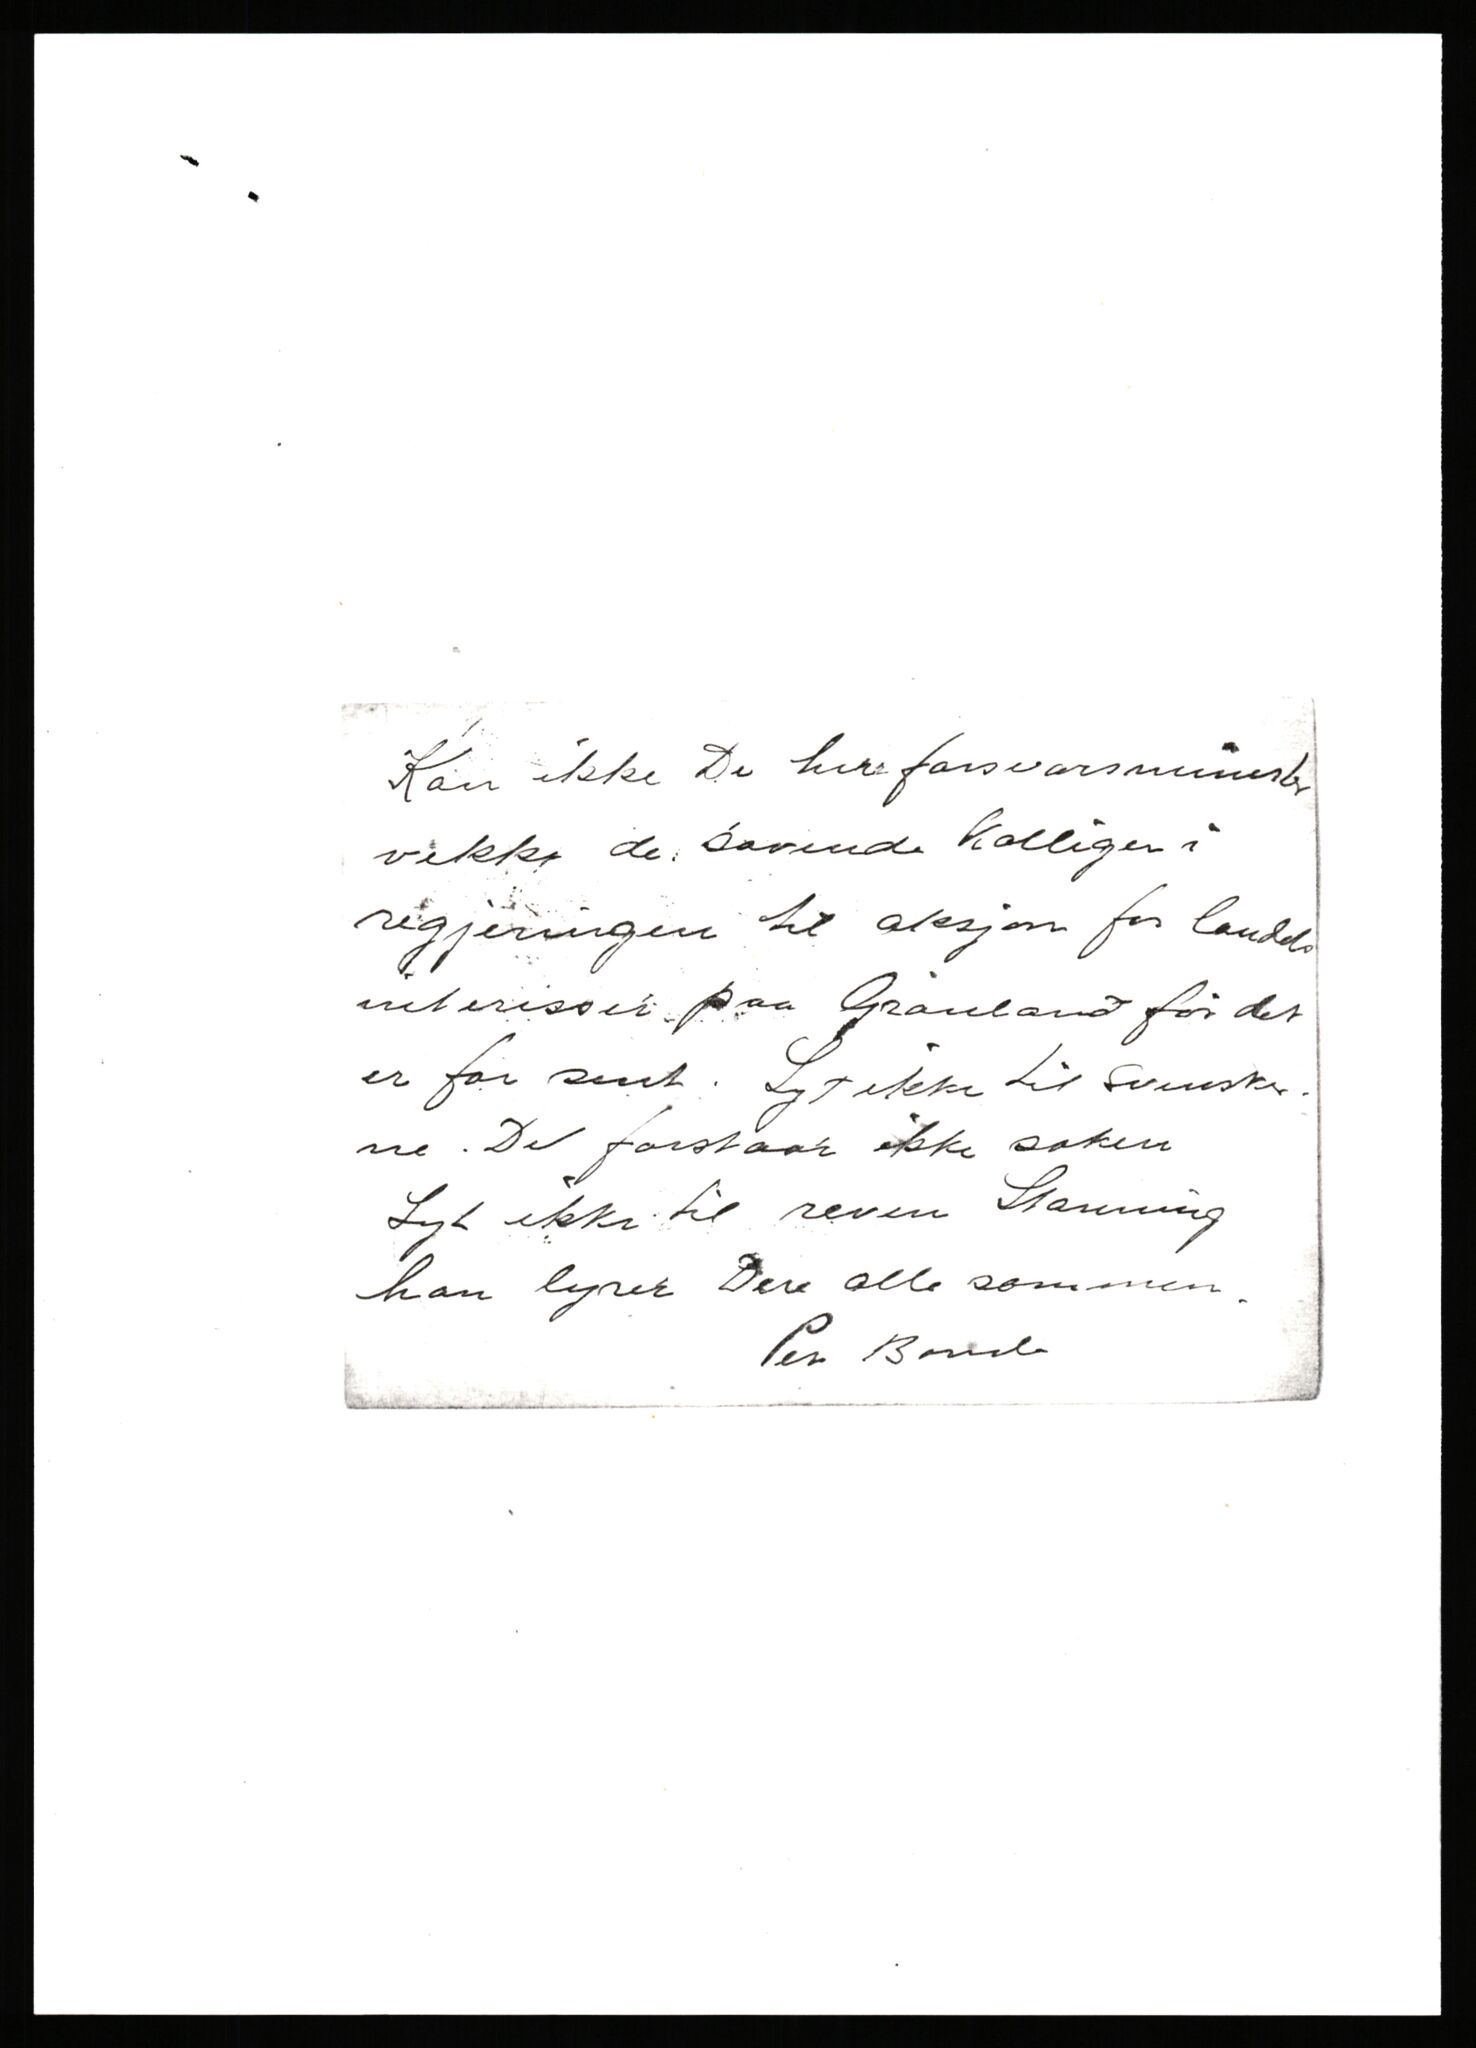 Kan ikke De herr forsvarsminister
vekke de sovende kolliger i
regjeringen til aksjon for landets
interisser paa Grönland för det
er for sent. Lyt ikke til svensker-
ne. De forstaar ikke saken
Lyt ikke til reven Stauning
han lyrer Dere alle sammen.
Per Bonde